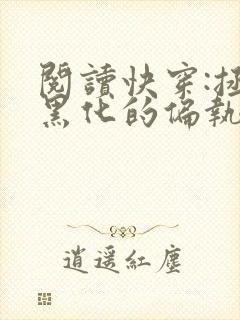 閱讀快穿:拯
黑化的偏執
逍遥紅塵